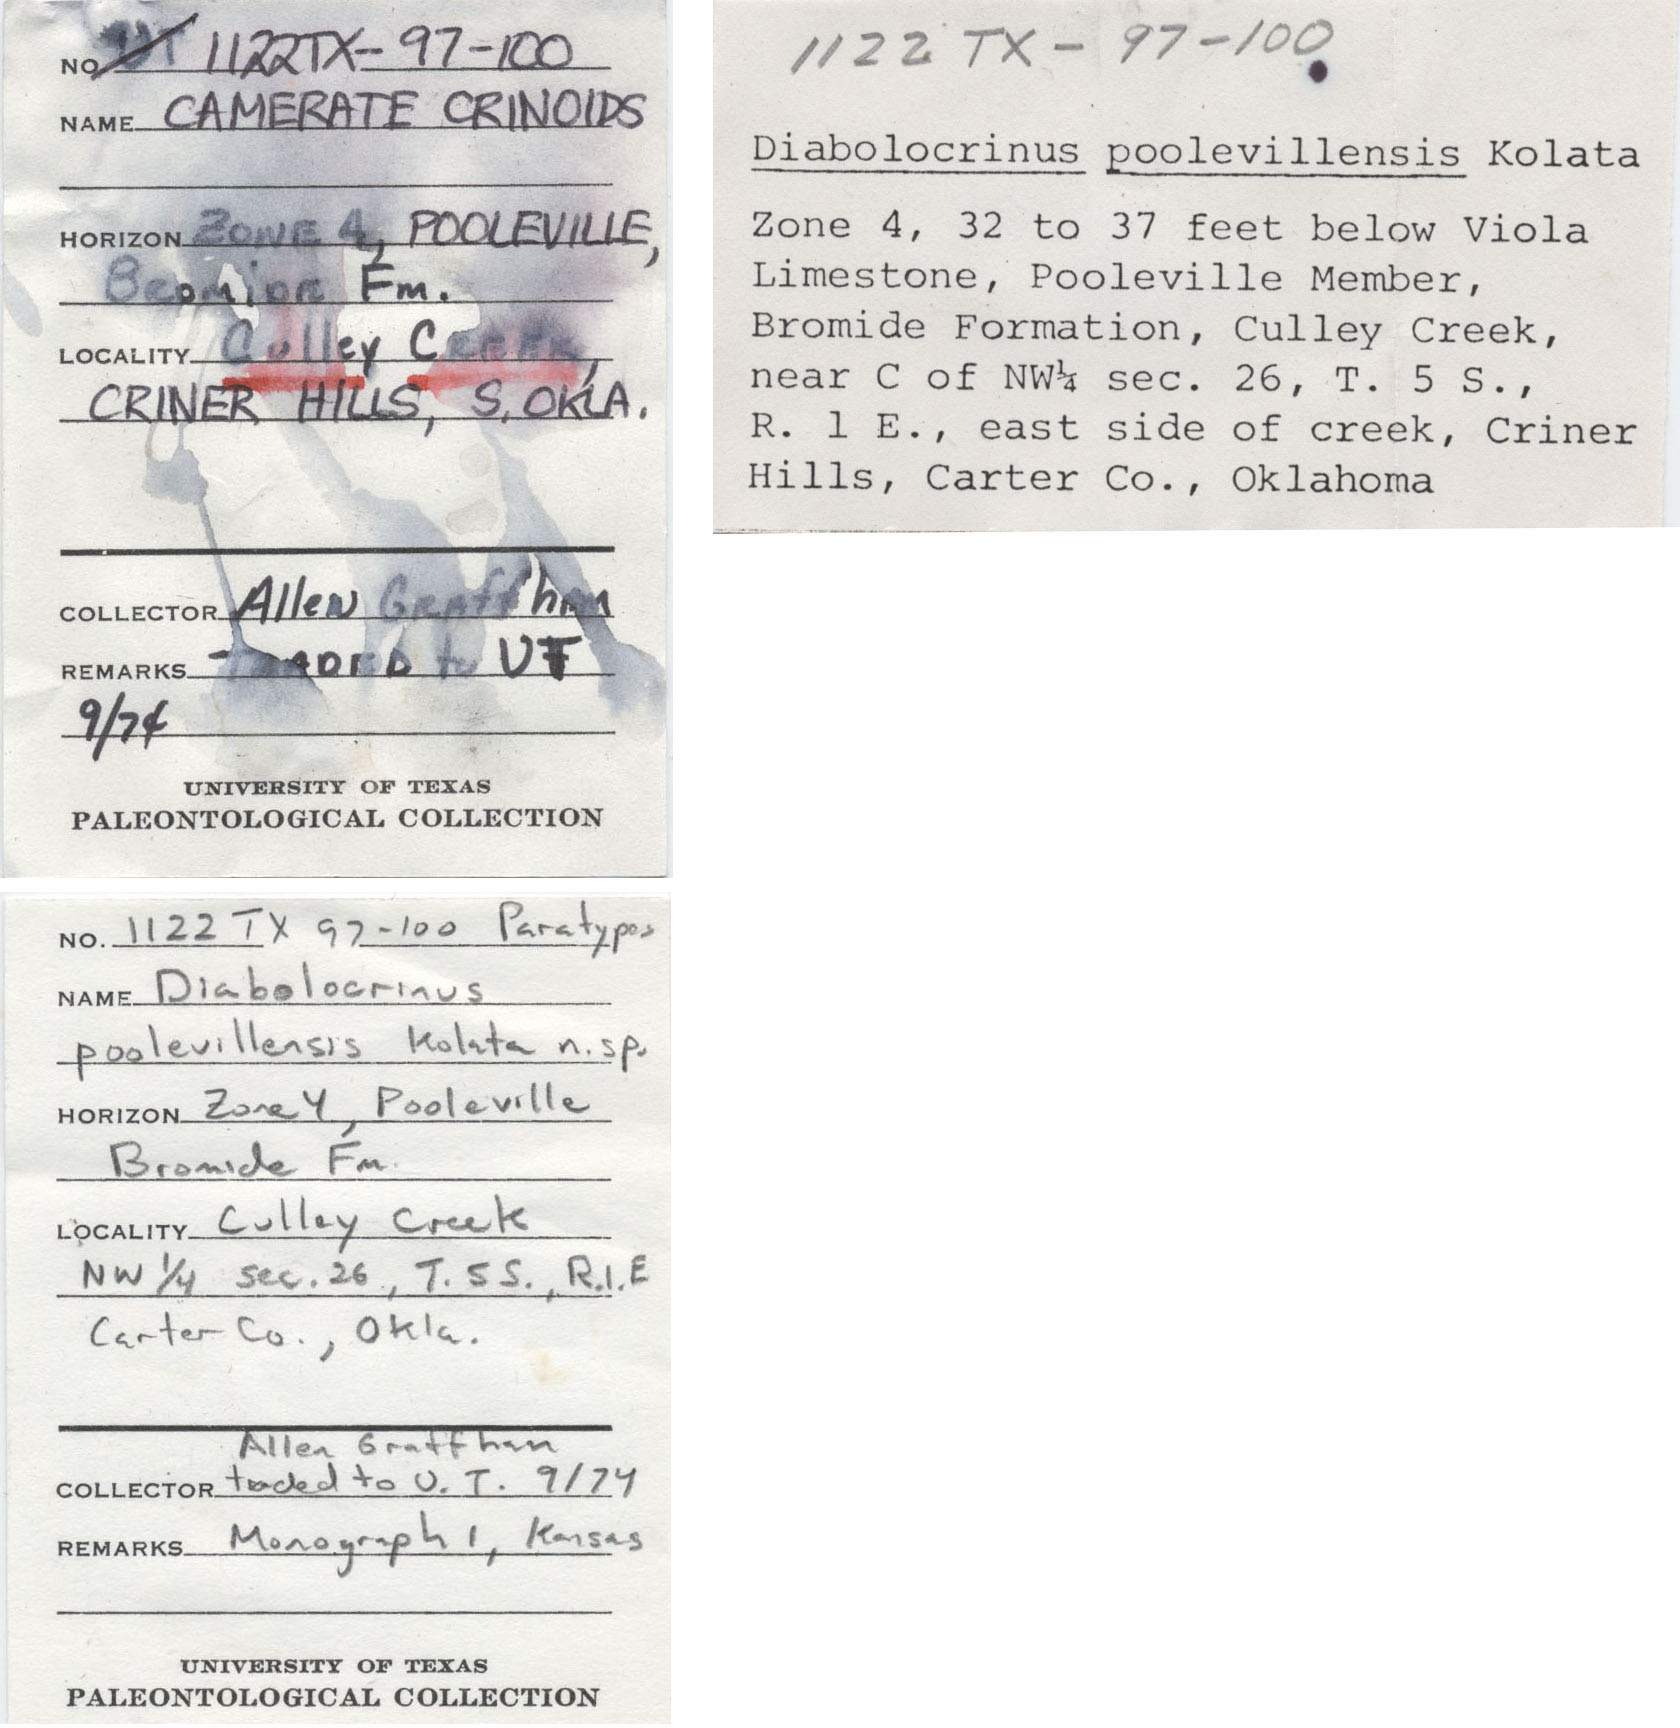 NO. UT 1122TX-97-100
NAME CAMERATE CRINOIDS
HORIZON ZONE 4, POOLEVILLE,
Bromide Fm.
LOCALITY Culley Creek,
CRINER HILLS, S. OKLA.
COLLECTOR Allen Graffham
REMARKS TRADED to UT
9/74
UNIVERSITY OF TEXAS
PALEONTOLOGICAL COLLECTION
1122 TX - 97-100
Diabolocrinus poolevillensis Kolata
Zone 4, 32 to 37 feet below Viola
Limestone, Pooleville Member,
Bromide Formation, Culley Creek,
near C of NW¼ sec. 26, T. 5 S.,
R. 1 E., east side of creek, Criner
Hills, Carter Co., Oklahoma
NO. 1122 TX 97-100 Paratypes
NAME Diabolocrinus
poolevillensis Kolata n.sp.
HORIZON Zone 4, Pooleville
Bromide Fm.
LOCALITY Culley Creek
NW 1/4 sec. 26, T. 5 S., R.1.E
Carter Co., Okla.
Allen Graffham
COLLECTOR traded to U. T. 9/74
REMARKS Monograph 1, Kansas
UNIVERSITY OF TEXAS
PALEONTOLOGICAL COLLECTION